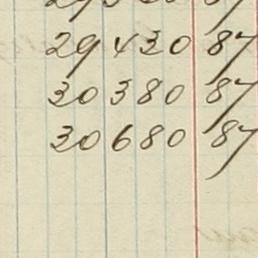 29430 87
30380 87
30680 87